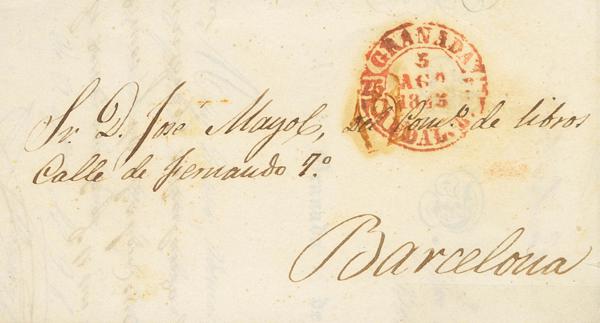 GRANADA
5
AGO
1845
ANDAL. B.
Sr. D. José Mayol, del Com.º de libros
Calle de Fernando 7.º
Barcelona